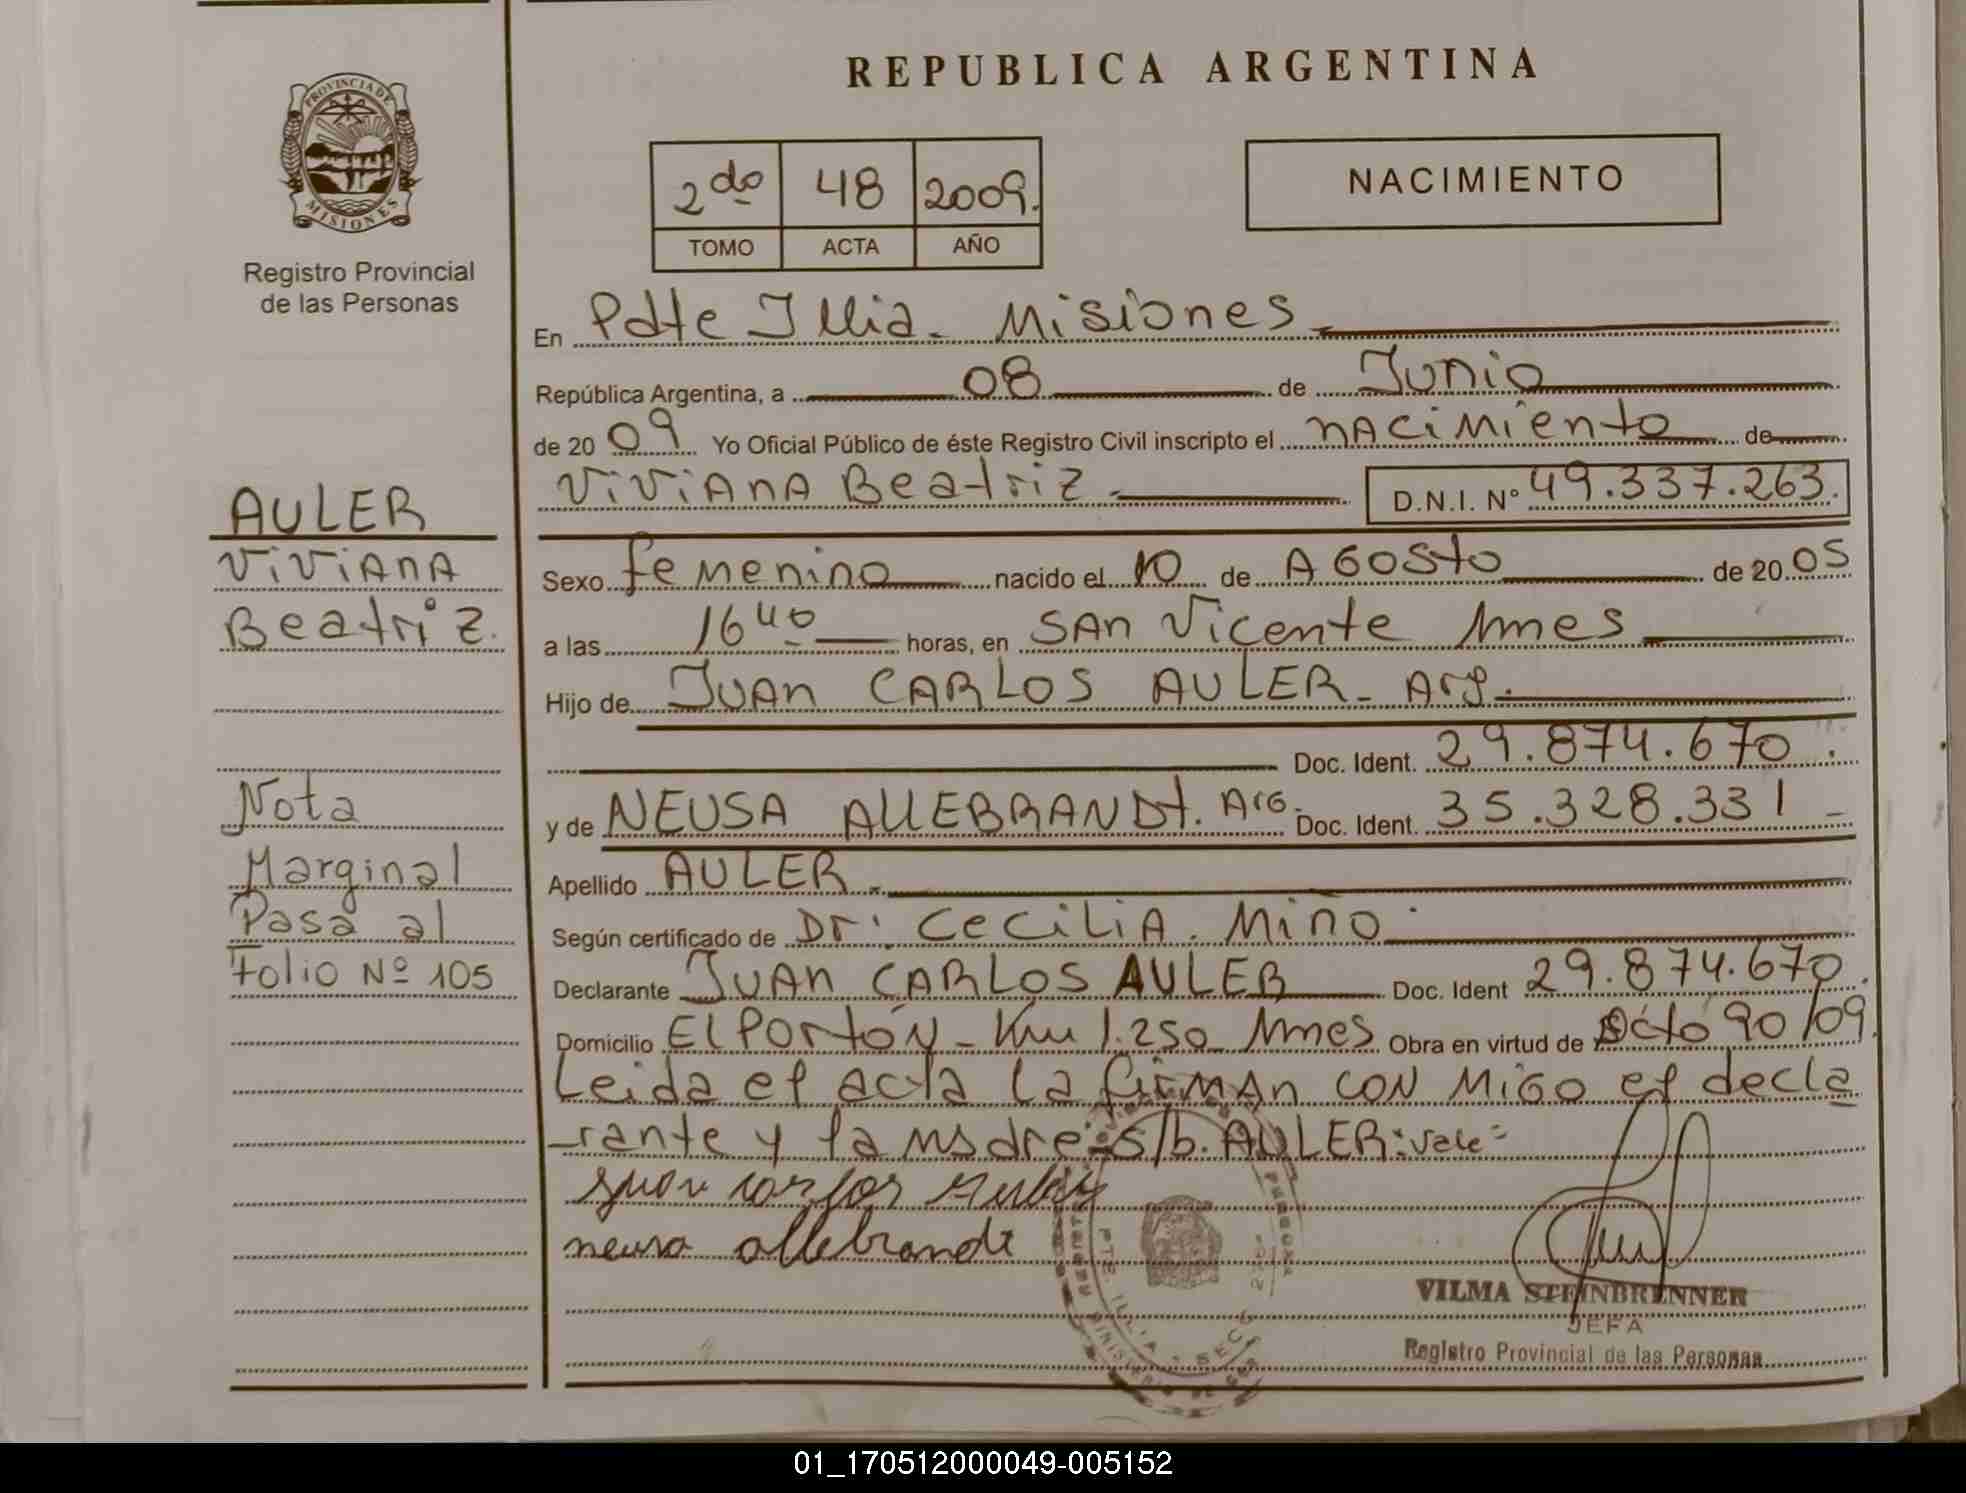 REPUBLICA ARGENTINA
PROVINCIA DE
MISIONES
Registro Provincial
de las Personas
2do 48 2009.
TOMO ACTA AÑO
NACIMIENTO
En Pdte Illia - Misiones
República Argentina, a 08 de Junio
de 2009 Yo Oficial Público de éste Registro Civil inscripto el nacimiento de
Viviana Beatriz. D.N.I. Nº 49.337.263.
Sexo femenino nacido el 10 de AGosto de 2005
a las 16 40 horas, en San Vicente Mnes
Hijo de Juan CARLOS AULER - Arg.
Doc. Ident. 29.874.670
y de NEUSA ALLEBRANDt. Arg. Doc. Ident. 35.328.331 -
Apellido AULER.
Según certificado de Dr. Cecilia. Miño
Declarante Juan CARLOS AULER Doc. Ident 29.874.670.
Domicilio El Portón - Km 1.250 Mnes Obra en virtud de Dcto 90/09.
Leida el acta la firman con migo el decla
rante y la madre s/b. AULER: Vale=
Juan carlos Auler
neusa allebrandt
VILMA STEINBRENNER
JEFA
Registro Provincial de las Personas
AULER
Viviana
Beatriz.
Nota
Marginal
Pasa al
Folio Nº 105
01_170512000049-005152